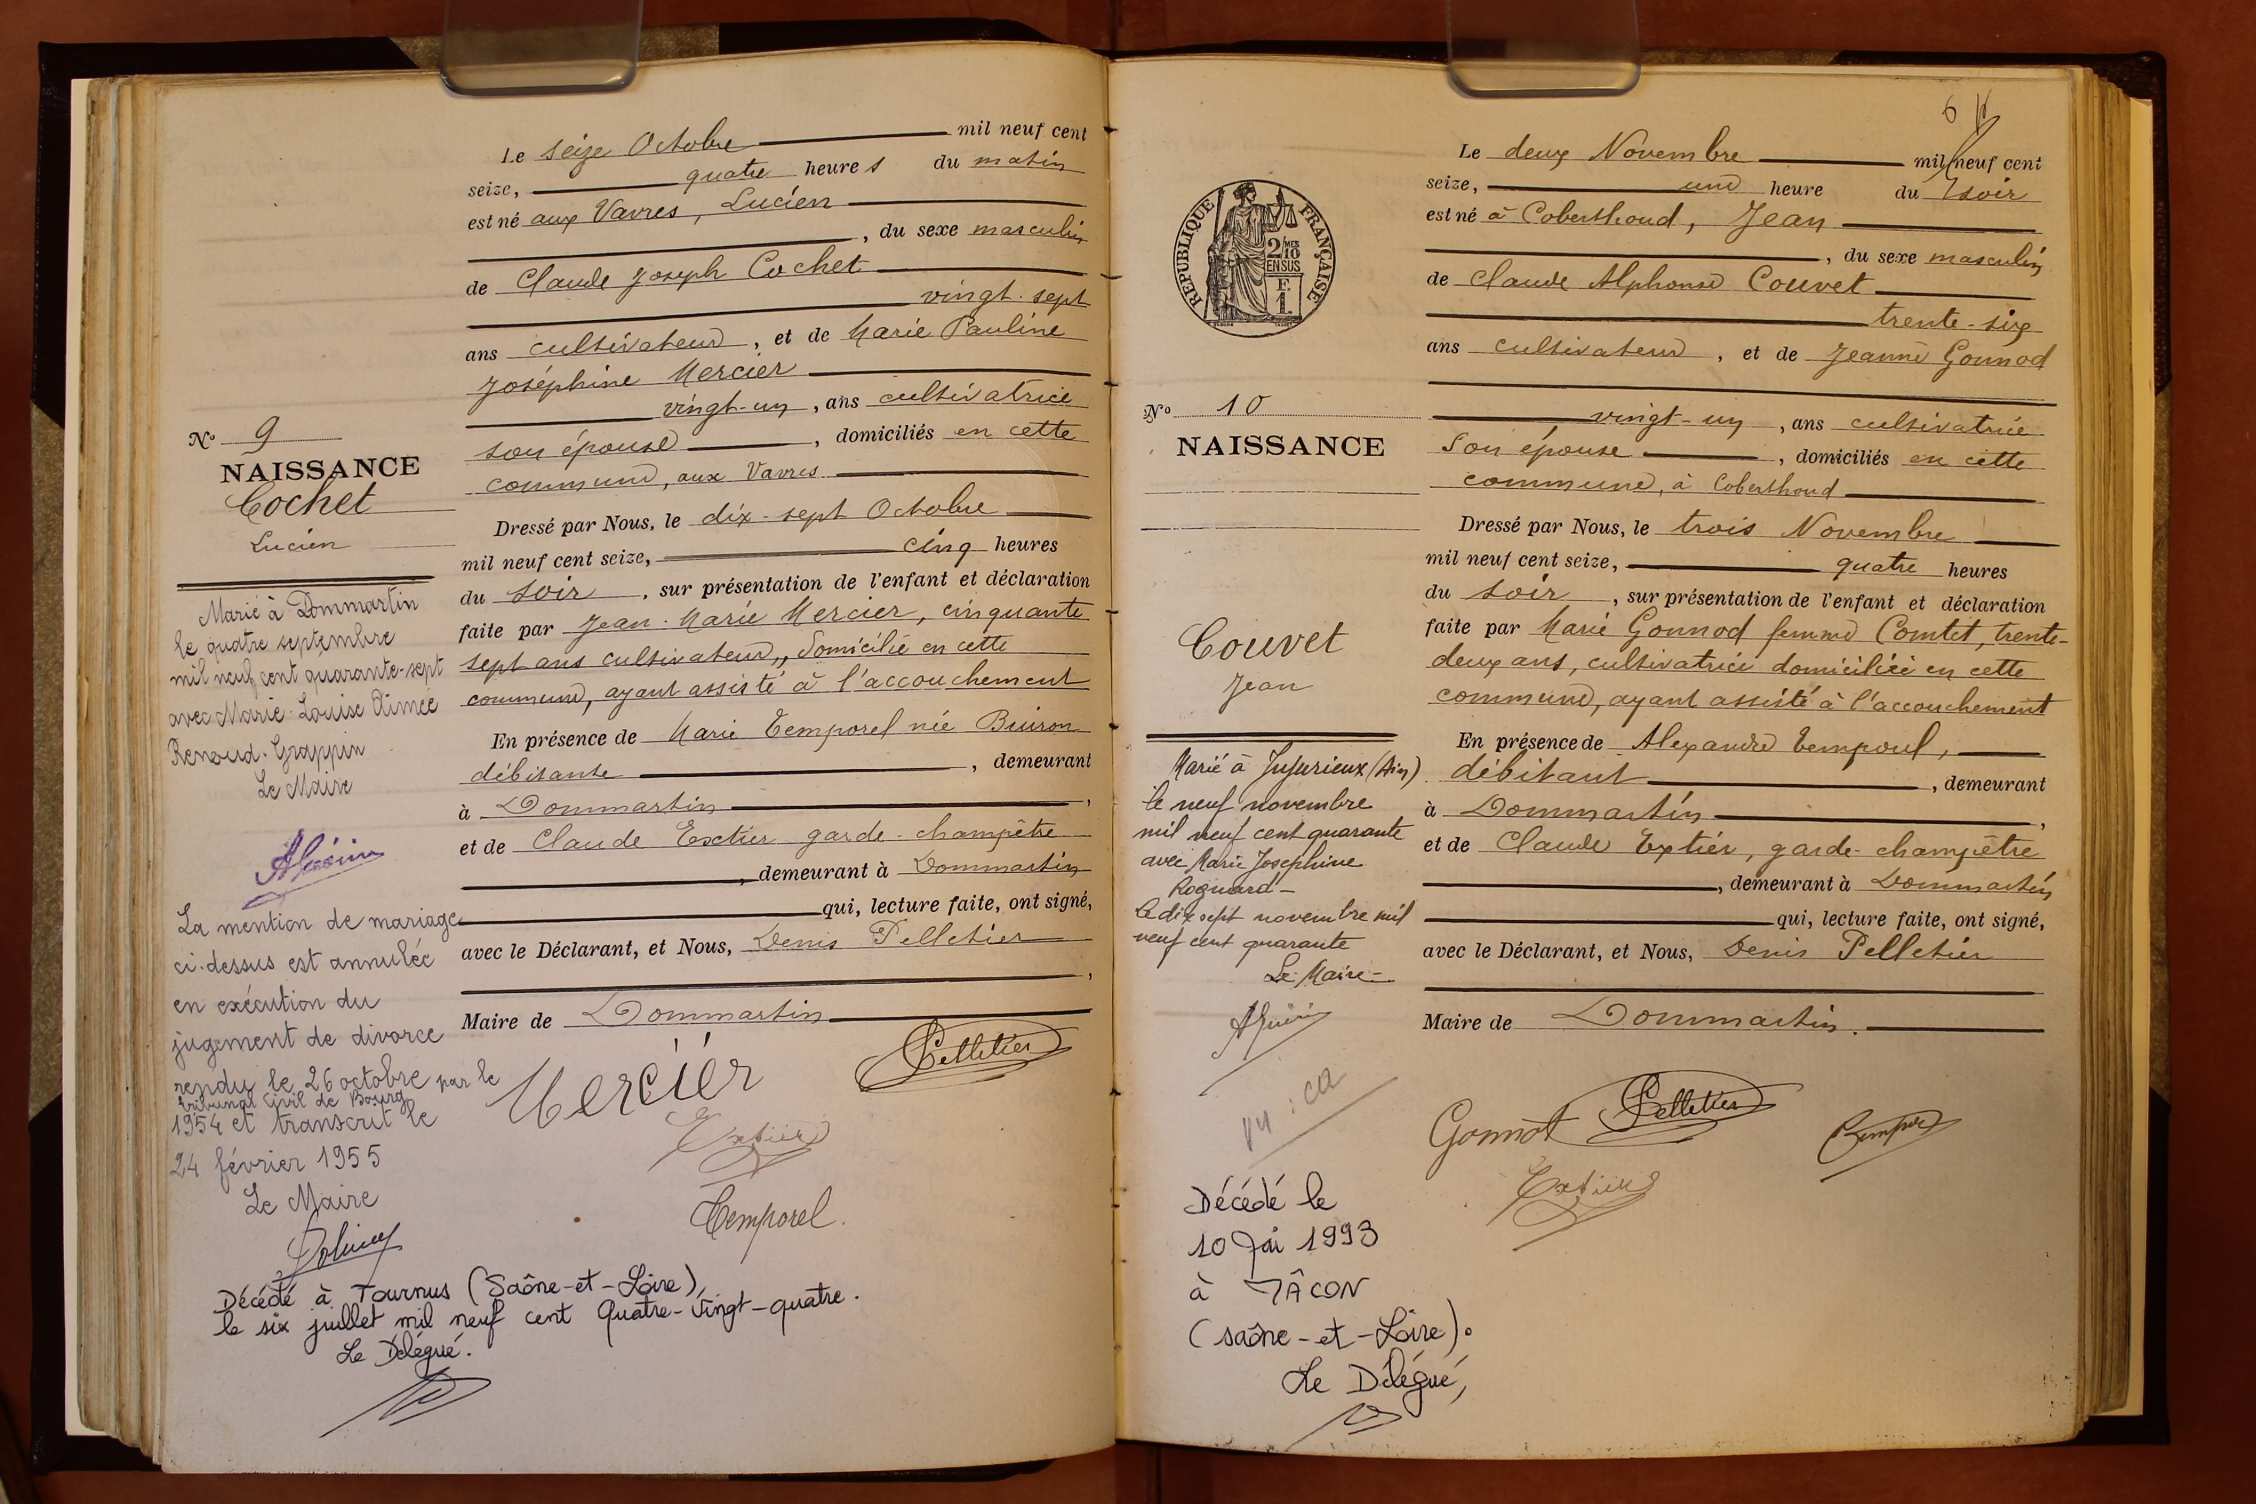 Le seize Octobre mil neuf cent
seize, quatre heures du matin
est né aux Vavres, Lucien
, du sexe masculin
de Claude Joseph Cochet
vingt-sept
ans cultivateur, et de Marie Pauline
Joséphine Mercier
vingt-un, ans cultivatrice
son épouse, domiciliés en cette
commune, aux Vavres
Dressé par Nous, le dix-sept Octobre
mil neuf cent seize, cinq heures
du soir, sur présentation de l'enfant et déclaration
faite par Jean-Marie Mercier, cinquante
sept ans cultivateur, domicilié en cette
commune, ayant assisté à l'accouchement
En présence de Marie Temporel née Buiron
débitante, demeurant
à Dommartin,
et de Claude Extier garde-champêtre
, demeurant à Dommartin
qui, lecture faite, ont signé,
avec le Déclarant, et Nous, Denis Pelletier
,
Maire de Dommartin
Mercier
Pelletier
Extier
Temporel.
No 9
NAISSANCE
Cochet
Lucien
Marié à Dommartin
le quatre septembre
mil neuf cent quarante-sept
avec Marie-Louise Aimée
Renoud-Grappin
Le Maire
La mention de mariage
ci-dessus est annulée
en exécution du
jugement de divorce
rendu le 26 octobre par le
tribunal civil de Bourg
1954 et transcrit le
24 février 1955
Le Maire
Décédé à Tournus (Saône-et-Loire)
le six juillet mil neuf cent Quatre-Vingt-quatre.
Le Délégué.
6
Le deux Novembre mil neuf cent
seize, une heure du soir
est né à Coberthoud, Jean
, du sexe masculin
de Claude Alphonse Couvet
trente-six
ans cultivateur, et de Jeanne Gonnod
vingt-un, ans cultivatrice
son épouse, domiciliés en cette
commune, à Coberthoud
Dressé par Nous, le trois Novembre
mil neuf cent seize, quatre heures
du soir, sur présentation de l'enfant et déclaration
faite par Marie Gonnod femme Comtet, trente-
deux ans, cultivatrice domiciliée en cette
commune, ayant assisté à l'accouchement
En présence de Alexandre Temporel,
débitant, demeurant
à Dommartin,
et de Claude Extier, garde-champêtre
, demeurant à Dommartin
qui, lecture faite, ont signé,
avec le Déclarant, et Nous, Denis Pelletier
Maire de Dommartin.
Gonnot
Pelletier
Extier
REPUBLIQUE FRANÇAISE
2/10 MES
EN SUS
F.
1.
No 10
NAISSANCE
Couvet
Jean
Marié à Jujurieux (Ain)
le neuf novembre
mil neuf cent quarante
avec Marie Josephine
Le dix sept novembre mil
neuf cent quarante
Le Maire
Décédé le
10 Mai 1993
à MÂCON
(Saône-et-Loire).
Le Délégué,